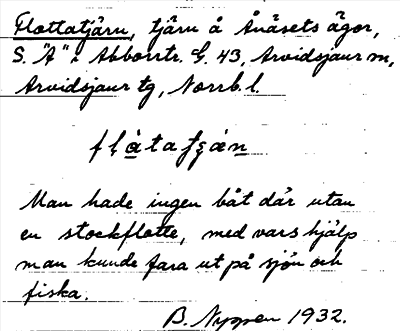 Flottatjärn, tjärn å Ånäsets ägor,
S. "A" i Abborrtr. G. 43, Arvidsjaur m,
Arvidsjaur tg, Norrb. l.
flåtatjän
Man hade ingen båt där utan
en stockflotte, med vars hjälp
man kunde fara ut på sjön och
fiska.
B. Nyman 1932.